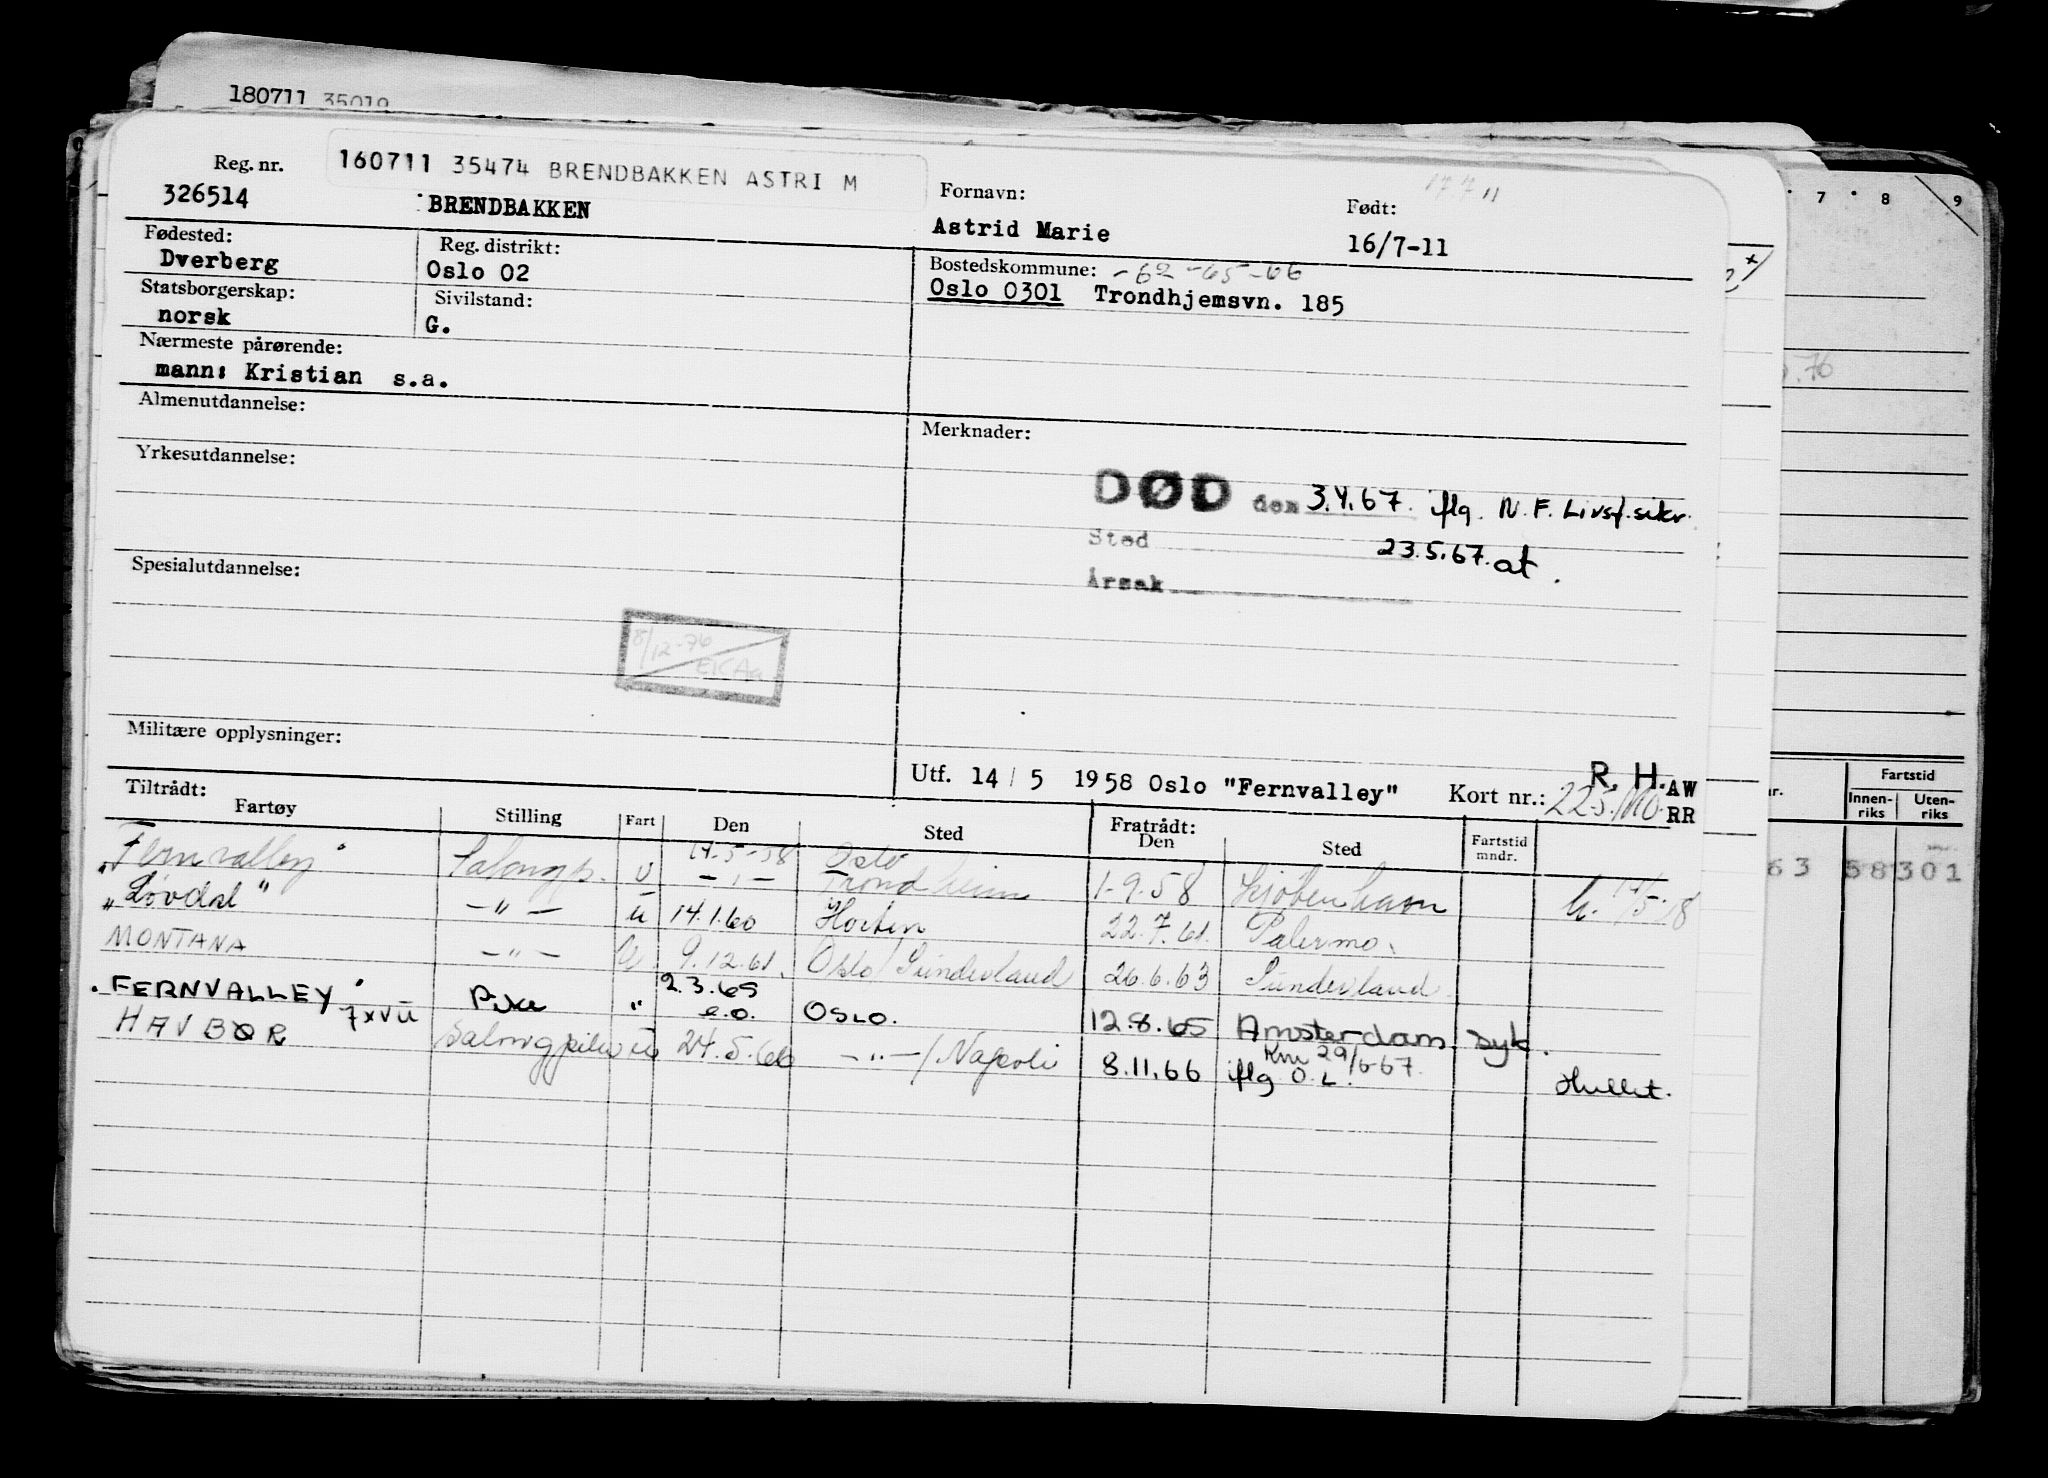 180711 35019
7 8 9
Reg. nr. 160711 35474 BRENDBAKKEN ASTRI M
17 7 11
326514 BRENDBAKKEN
Fornavn: Født:
Astrid Marie 16/7-11
Fødested: Reg. distrikt:
Dverberg Oslo 02
Bostedskommune: -62-65-66
Oslo 0301 Trondhjemsvn. 185
Statsborgerskap: Sivilstand:
norsk G.
Nærmeste pårørende:
mann: Kristian s.a.
Almenutdannelse:
Merknader:
Yrkesutdannelse:
DØD den 3.4.67. iflg. N.F. Livsf.sikr.
Sted 23.5.67. at.
Årsak
Spesialutdannelse:
8/12-76
EKAa
Militære opplysninger:
Utf. 14 / 5 1958 Oslo "Fernvalley" Kort nr.: R. H. AW
225/ RR
Tiltrådt: Fratrådt:
Fartøy Stilling Fart Den Sted Den Sted Fartstid mndr.
"Fernvalley" Salongp. u 14-5-58 Oslo
-"- Trondheim 1-9-58 Kjøbenhavn
"Løvdal" -"- u 14.1.60 Horten 22.7.61. Palermo.
MONTANA -"- U. 9.12.61. Oslo/Sunderland 26.6.63 Sunderland
"FERNVALLEY" Pike " 2.3.65 e.o. OSLO. 12.8.65 Amsterdam syk.
7xvu
HAVBØR Salongpike u 24.5.66 -"-/Napoli 8.11.66 iflg O.L. Hullet.
Km 29/6-67.
Fartstid
Innen-riks Uten-riks
63 58 301